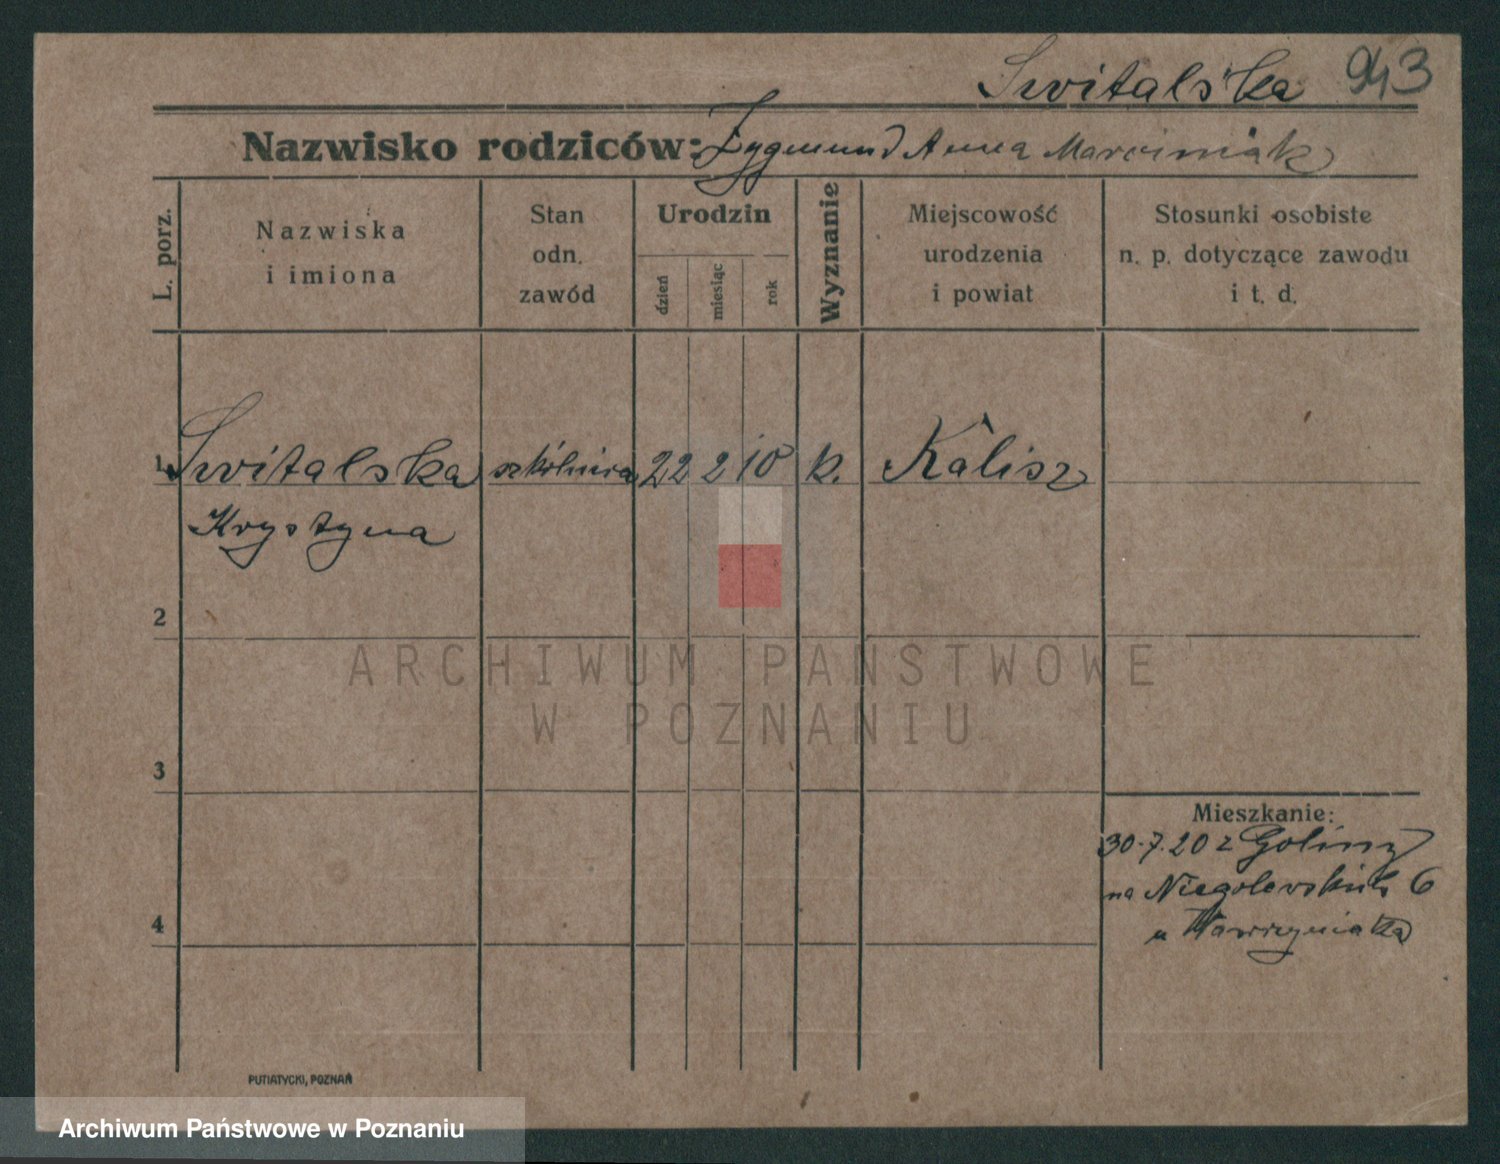 Switalska 943
Nazwisko rodziców: Zygmund Anna Marciniak
L. porz.
Nazwiska
i imiona
Stan
odn.
zawód
Urodzin
dzień
miesiąc
rok
Wyznanie
Miejscowość
urodzenia
i powiat
Stosunki osobiste
n. p. dotyczące zawodu
i t. d.
1 Switalska szkólnica 22 2 10 k. Kalisz
Krystyna
2
ARCHIWUM PAŃSTWOWE
W POZNANIU
3
Mieszkanie:
30.7.20 z Goliny
na Niegolewskich 6
u Wawrzyniaka
4
PUTIATYCKI, POZNAŃ
Archiwum Państwowe w Poznaniu